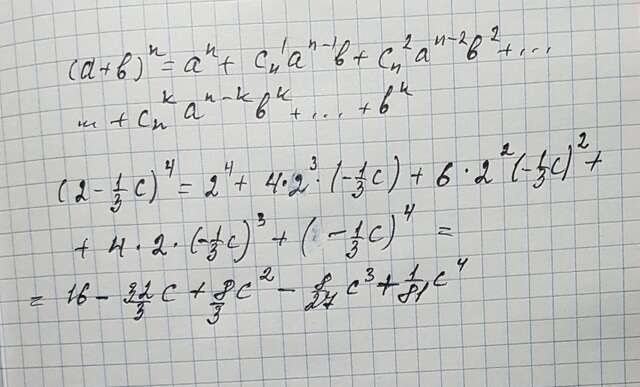 (a+b)ⁿ = aⁿ + Cₙ¹aⁿ⁻¹b + Cₙ²aⁿ⁻²b² + ...
... + Cₙᵏ aⁿ⁻ᵏ bᵏ + ... + bⁿ
(2 - 1/3 c)⁴ = 2⁴ + 4·2³·(-1/3 c) + 6·2²(-1/3 c)² +
+ 4·2·(-1/3 c)³ + (-1/3 c)⁴ =
= 16 - 32/3 c + 8/3 c² - 8/27 c³ + 1/81 c⁴